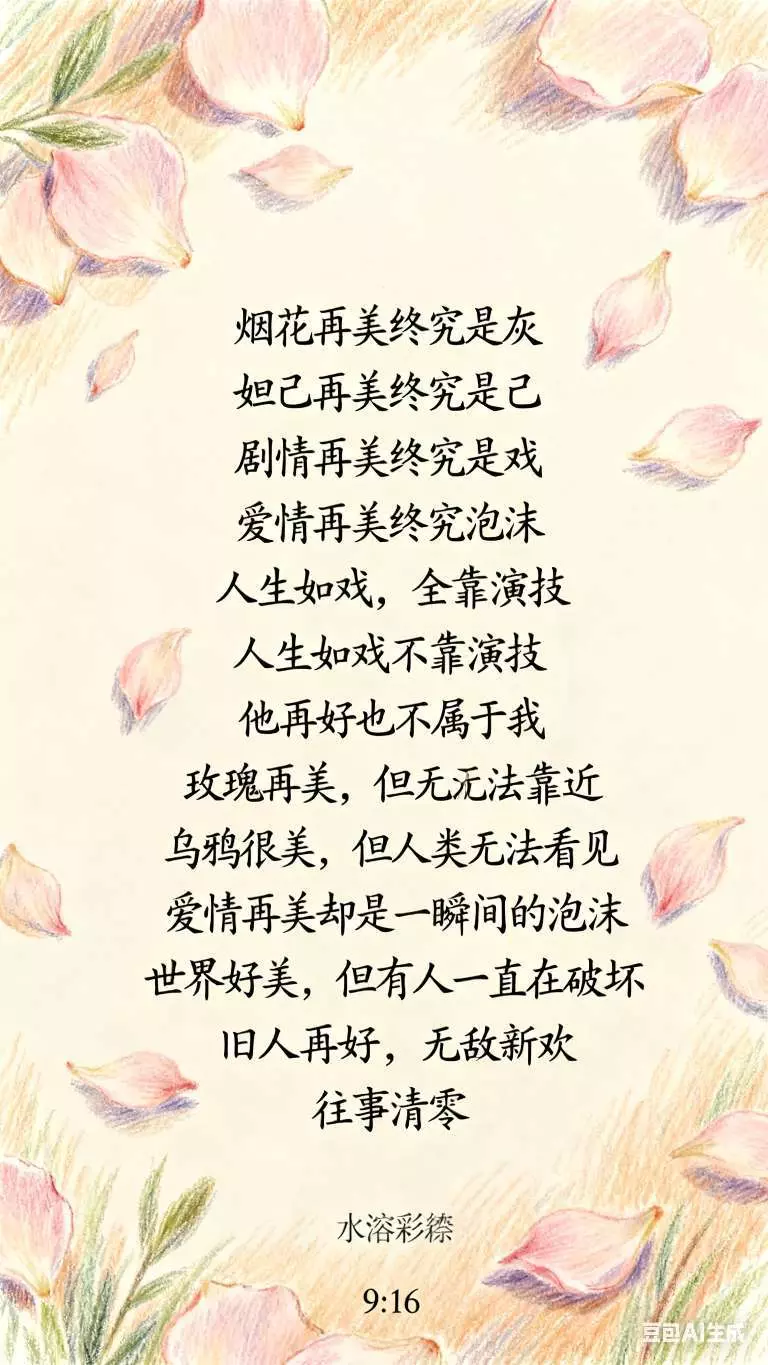 烟花再美终究是灰
妲己再美终究是己
剧情再美终究是戏
爱情再美终究泡沫
人生如戏，全靠演技
人生如戏不靠演技
他再好也不属于我
玫瑰再美，但无无法靠近
乌鸦很美，但人类无法看见
爱情再美却是一瞬间的泡沫
世界好美，但有人一直在破坏
旧人再好，无敌新欢
往事清零
水溶彩
9:16
豆包AI生成